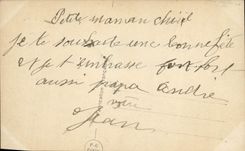 Petite maman chérie
je te souhaite une bonne fête
et je t'embrasse fort fort
aussi papa André
votre
Jean